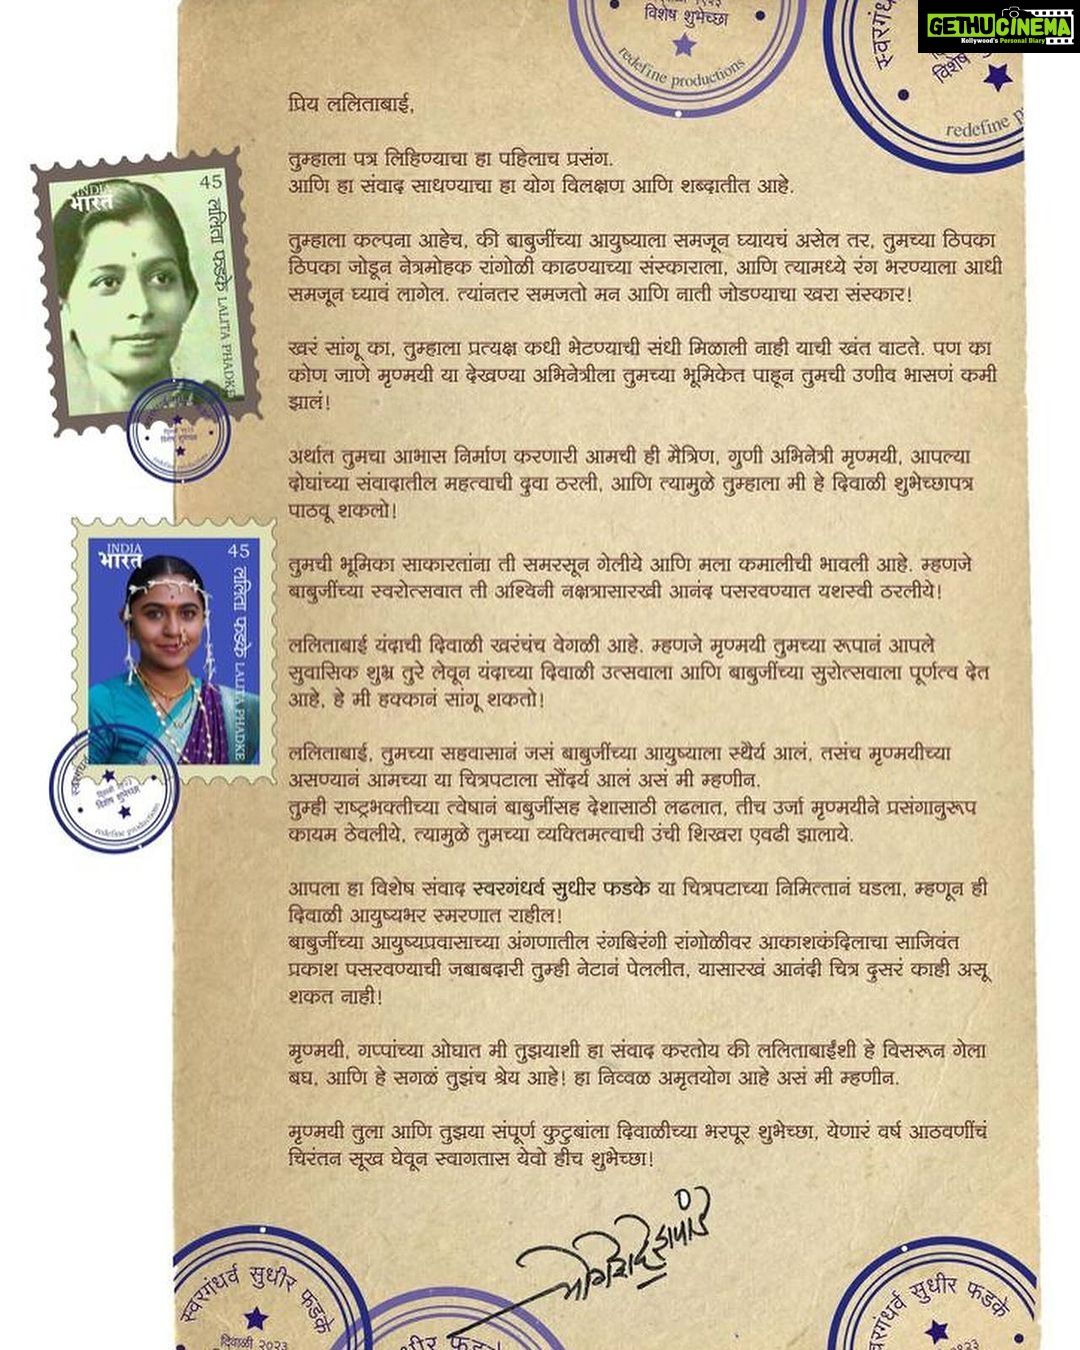 GETHUCINEMA
Kollywood's Personal Diary
विशेष शुभेच्छा
redefine productions
स्वरगंधर्व
विशेष
redefine
प्रिय ललिताबाई,
तुम्हाला पत्र लिहिण्याचा हा पहिलाच प्रसंग.
आणि हा संवाद साधण्याचा हा योग विलक्षण आणि शब्दातीत आहे.
तुम्हाला कल्पना आहेच, की बाबुजींच्या आयुष्याला समजून घ्यायचं असेल तर, तुमच्या ठिपका
ठिपका जोडून नेत्रमोहक रांगोळी काढण्याच्या संस्काराला, आणि त्यामध्ये रंग भरण्याला आधी
समजून घ्यावं लागेल. त्यांनतर समजतो मन आणि नाती जोडण्याचा खरा संस्कार!
खरं सांगू का, तुम्हाला प्रत्यक्ष कधी भेटण्याची संधी मिळाली नाही याची खंत वाटते. पण का
कोण जाणे मृण्मयी या देखण्या अभिनेत्रीला तुमच्या भूमिकेत पाहून तुमची उणीव भासणं कमी
झालं!
अर्थात तुमचा आभास निर्माण करणारी आमची ही मैत्रिण, गुणी अभिनेत्री मृण्मयी, आपल्या
दोघांच्या संवादातील महत्वाची दुवा ठरली, आणि त्यामुळे तुम्हाला मी हे दिवाळी शुभेच्छापत्र
पाठवू शकलो!
तुमची भूमिका साकारतांना ती समरसून गेलीये आणि मला कमालीची भावली आहे. म्हणजे
बाबुजींच्या स्वरोत्सवात ती अश्विनी नक्षत्रासारखी आनंद पसरवण्यात यशस्वी ठरलीये!
ललिताबाई यंदाची दिवाळी खरंचंच वेगळी आहे. म्हणजे मृण्मयी तुमच्या रूपानं आपले
सुवासिक शुभ्र तुरे लेवून यंदाच्या दिवाळी उत्सवाला आणि बाबुजींच्या सुरोत्सवाला पूर्णत्व देत
आहे, हे मी हक्कानं सांगू शकतो!
ललिताबाई, तुमच्या सहवासानं जसं बाबुजींच्या आयुष्याला स्थैर्य आलं, तसंच मृण्मयीच्या
असण्यानं आमच्या या चित्रपटाला सौंदर्य आलं असं मी म्हणीन.
तुम्ही राष्ट्रभक्तीच्या त्वेषानं बाबुजींसह देशासाठी लढलात, तीच उर्जा मृण्मयीने प्रसंगानुरूप
कायम ठेवलीये, त्यामुळे तुमच्या व्यक्तिमत्वाची उंची शिखरा एवढी झालाये.
आपला हा विशेष संवाद स्वरगंधर्व सुधीर फडके या चित्रपटाच्या निमित्तानं घडला, म्हणून ही
दिवाळी आयुष्यभर स्मरणात राहील!
बाबुजींच्या आयुष्यप्रवासाच्या अंगणातील रंगबिरंगी रांगोळीवर आकाशकंदिलाचा साजिवंत
प्रकाश पसरवण्याची जबाबदारी तुम्ही नेटानं पेललीत, यासारखं आनंदी चित्र दुसरं काही असू
शकत नाही!
मृण्मयी, गप्पांच्या ओघात मी तुझयाशी हा संवाद करतोय की ललिताबाईंशी हे विसरून गेला
बघ, आणि हे सगळं तुझंच श्रेय आहे! हा निव्वळ अमृतयोग आहे असं मी म्हणीन.
मृण्मयी तुला आणि तुझया संपूर्ण कुटुबांला दिवाळीच्या भरपूर शुभेच्छा, येणारं वर्ष आठवणींचं
चिरंतन सूख घेवून स्वागतास येवो हीच शुभेच्छा!
INDIA
भारत
45
ललिता फडके LALITA PHADKE
विशेष शुभेच्छा
redefine productions
INDIA
भारत
45
ललिता फडके LALITA PHADKE
विशेष शुभेच्छा
redefine productions
स्वरगंधर्व सुधीर फडके
दिवाळी २०२३
सुधीर फडके
स्वरगंधर्व सुधीर फडके